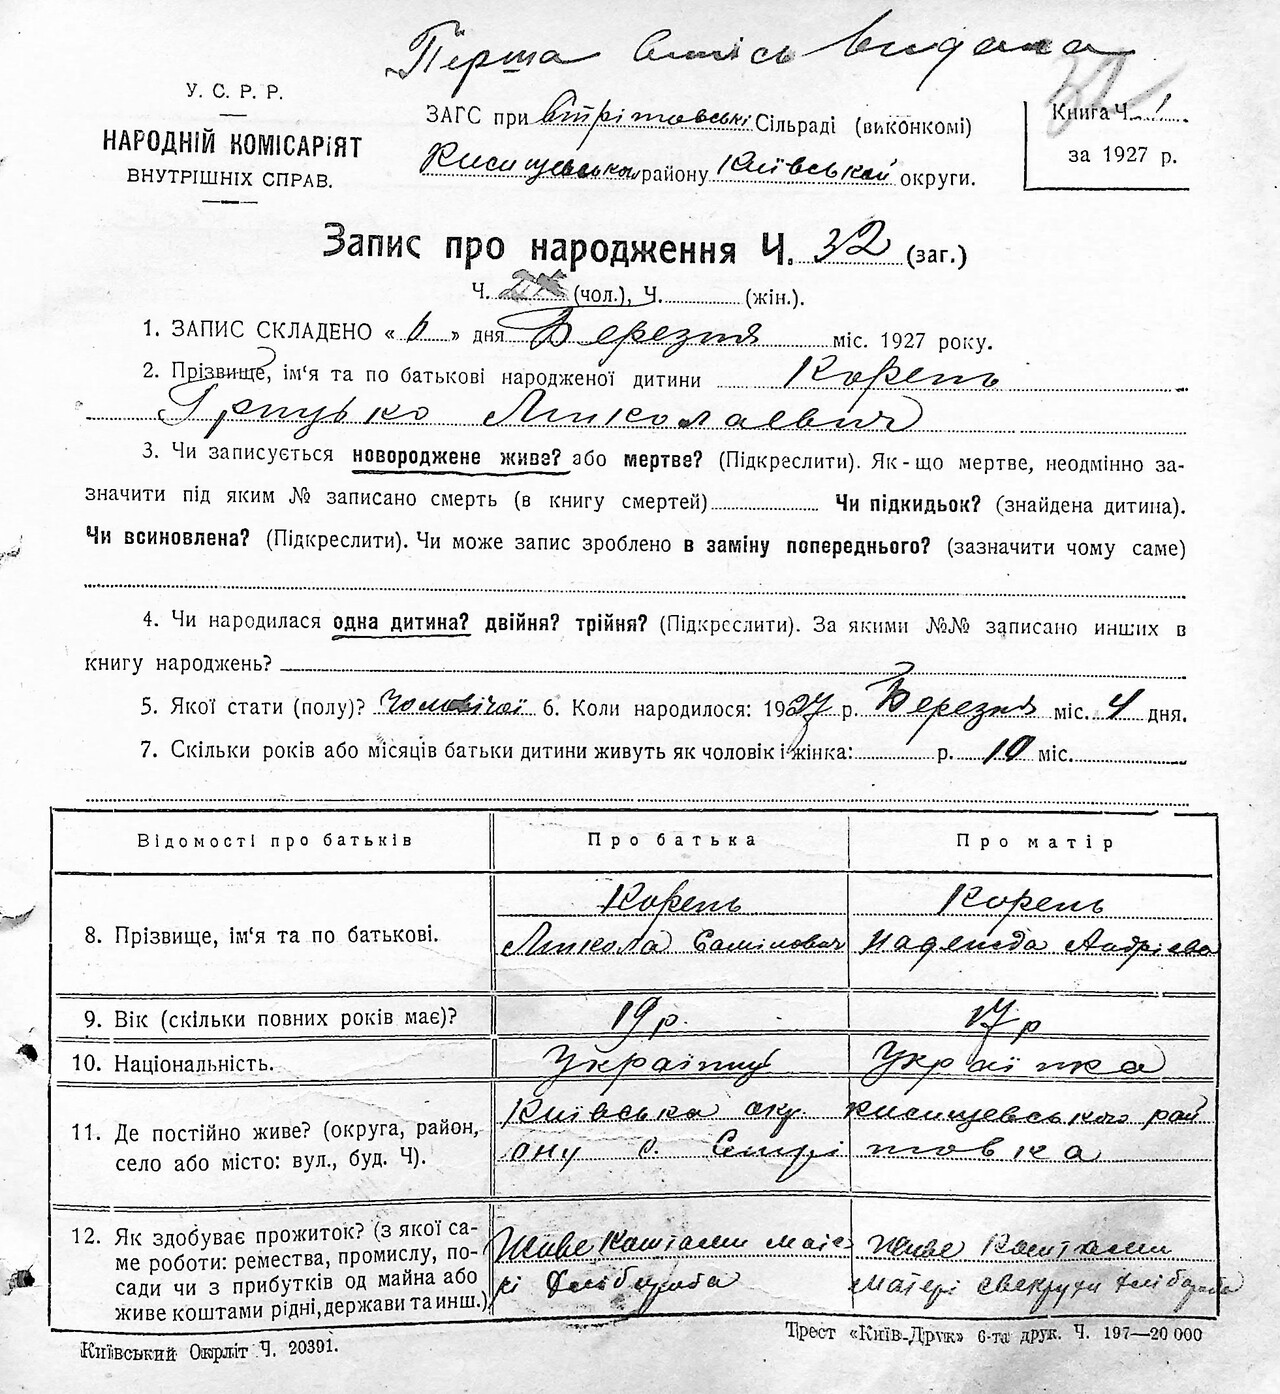 Перша випись видана
У. С. Р. Р.
НАРОДНІЙ КОМІСАРІЯТ
ВНУТРІШНІХ СПРАВ.
ЗАГС при Стрітовські Сільраді (виконкомі)
Кисищевськом району Київської округи.
32
Книга Ч. 1.
за 1927 р.
Запис про народження Ч. 32 (заг.)
Ч. (чол.), Ч. (жін.).
1. ЗАПИС СКЛАДЕНО « 6 » дня Березня міс. 1927 року.
2. Прізвище, ім'я та по батькові народженої дитини Корень
Грицько Миколаевич
3. Чи записується новороджене живе? або мертве? (Підкреслити). Як-що мертве, неодмінно за-
значити під яким № записано смерть (в книгу смертей) Чи підкидьок? (знайдена дитина).
Чи всиновлена? (Підкреслити). Чи може запис зроблено в заміну попереднього? (зазначити чому саме)
4. Чи народилася одна дитина? двійня? трійня? (Підкреслити). За якими №№ записано инших в
книгу народжень?
5. Якої стати (полу)? Чоловічої 6. Коли народилося: 1927 р. Березня міс. 4 дня.
7. Скільки років або місяців батьки дитини живуть як чоловік і жінка: р. 10 міс.
Відомості про батьків Про батька Про матір
8. Прізвище, ім'я та по батькові.
Корень
Микола Самілович
Корень
Надежда Андрієва
9. Вік (скільки повних років має)? 19 р. 17 р
10. Національність. Українці Українка
11. Де постійно живе? (округа, район,
село або місто: вул., буд. Ч).
Київська окр. Кисищевського рай
ону с. Стрітовка
12. Як здобуває прожиток? (з якої са-
ме роботи: ремества, промислу, по-
сади чи з прибутків од майна або
живе коштами рідні, держави та инш.)
Живе Коштами мате
рі Хлібороба
Живе Коштами
матері свекрухи хлібороба
Київський Окрліт Ч. 20391.
Трест «Київ-Друк» 6-та друк. Ч. 197—20 000